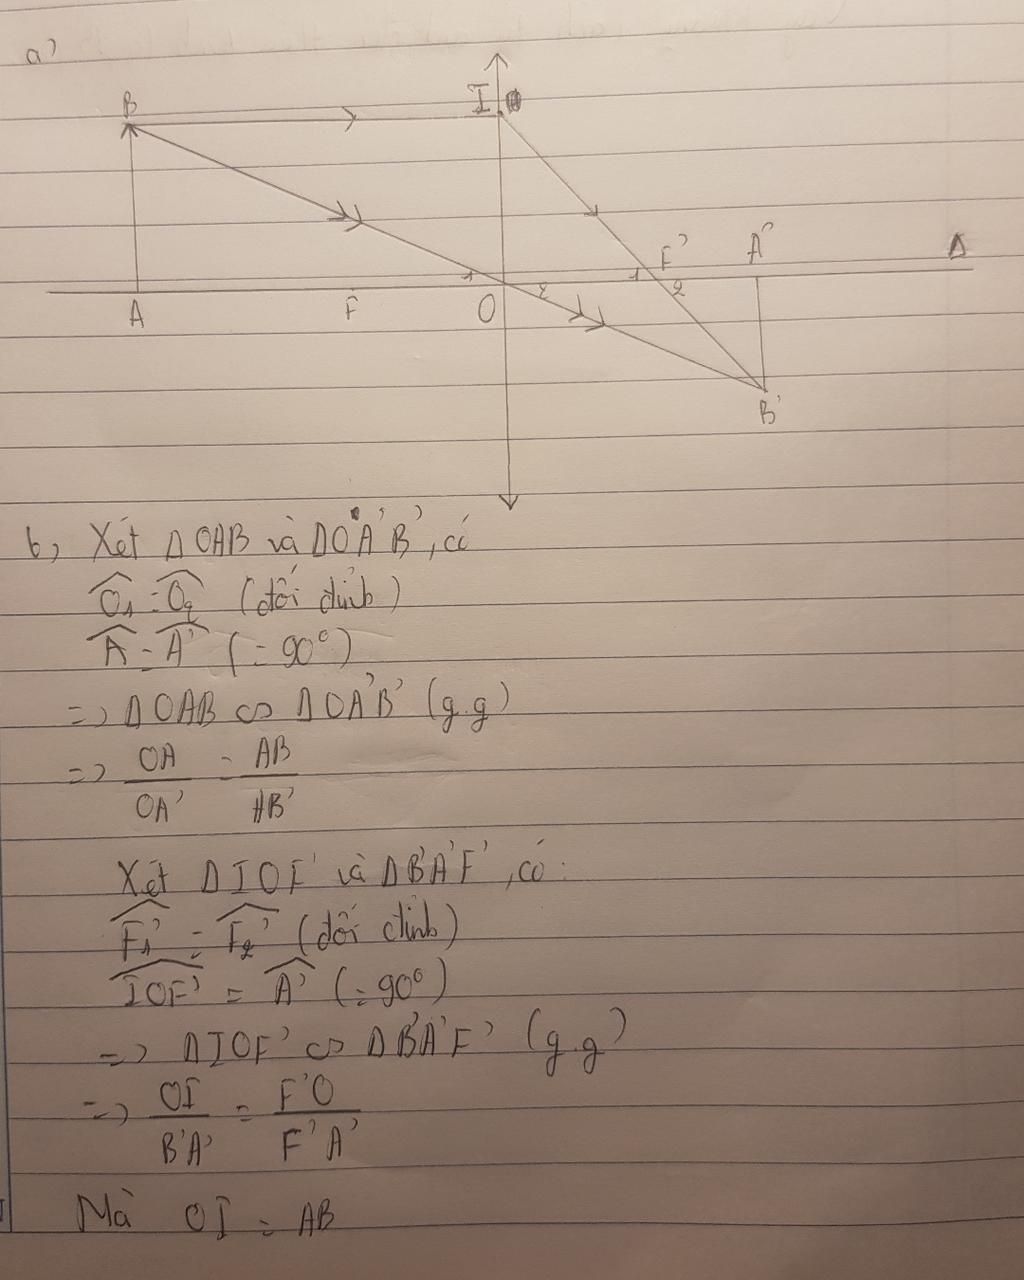 a,
B
I
F'
A'
Δ
1
1
2
2
A
F
O
B'
b, Xét ΔOAB và ΔOA'B', có
Ô1 = Ô2 (đối đỉnh)
Â = Â' (= 90°)
=> ΔOAB ∽ ΔOA'B' (g.g)
=> OA/OA' = AB/A'B'
Xét ΔIOF' và ΔB'A'F', có:
F̂1' = F̂2' (đối đỉnh)
ÎOF' = Â' (= 90°)
=> ΔIOF' ∽ ΔB'A'F' (g.g)
=> OI/B'A' = F'O/F'A'
Mà OI = AB